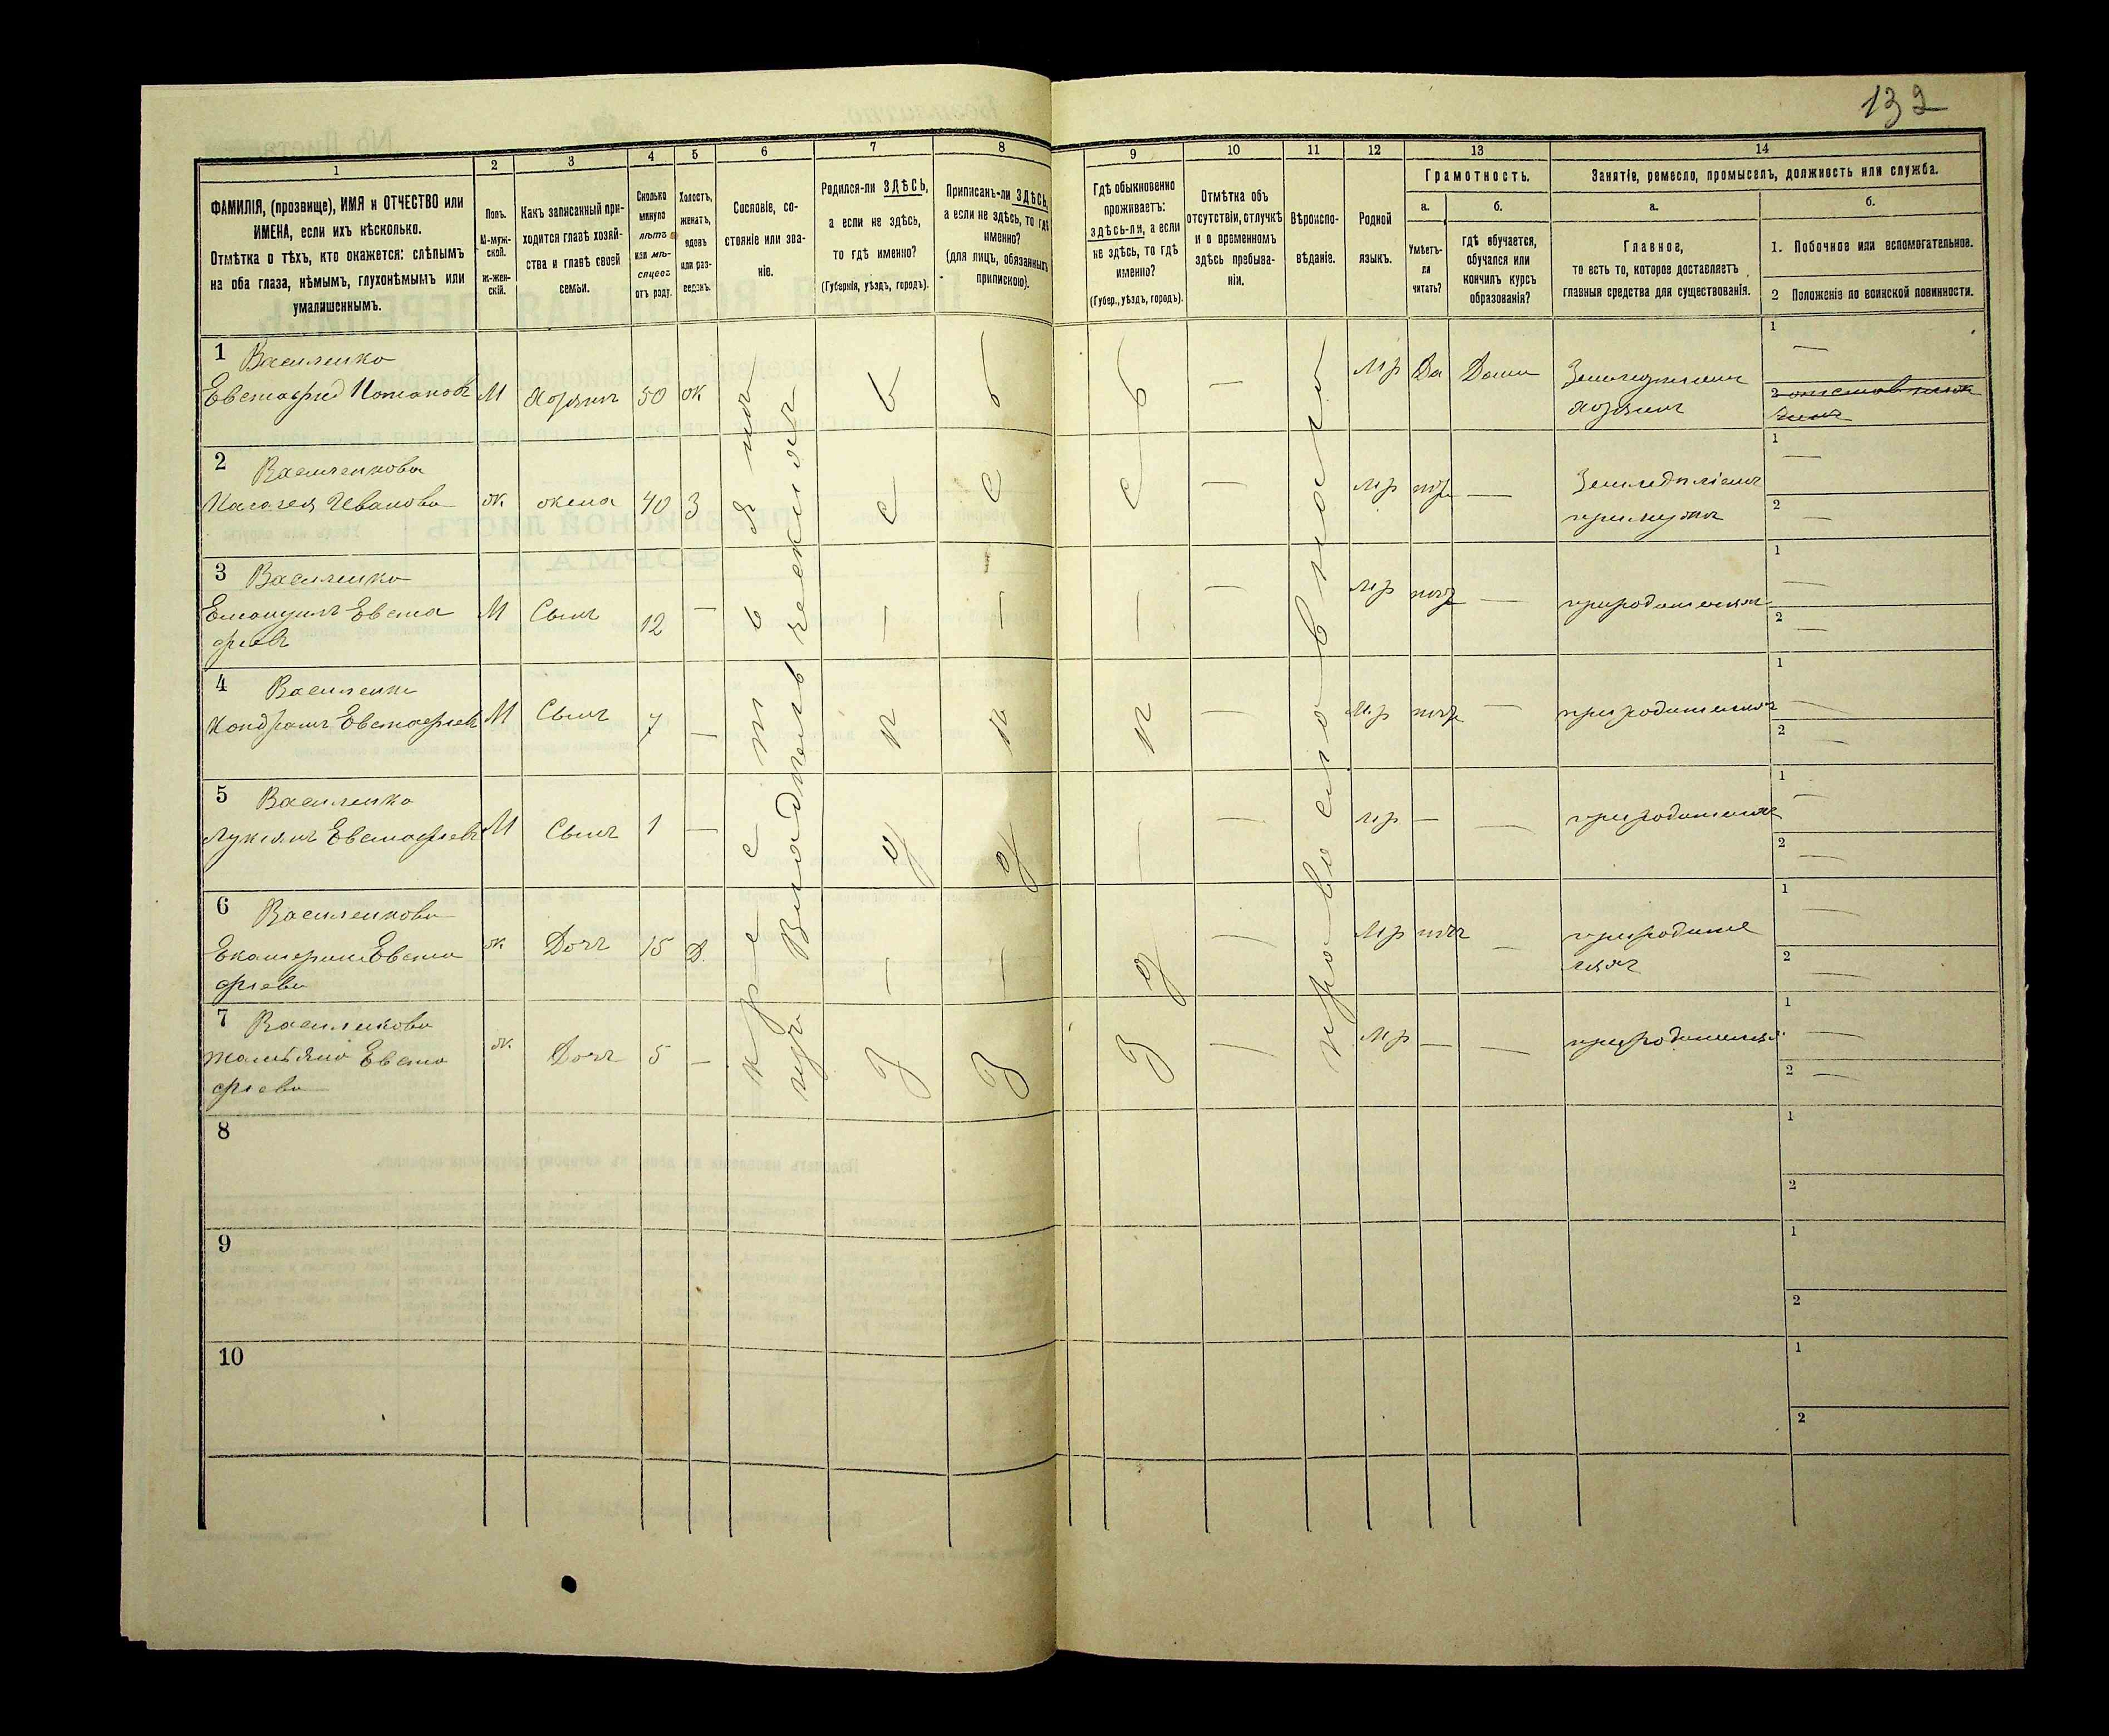 132
1 2 3 4 5 6 7 8 9 10 11 12 13 14
ФАМИЛІЯ, (прозвище), ИМЯ и ОТЧЕСТВО или
ИМЕНА, если ихъ нѣсколько.
Отмѣтка о тѣхъ, кто окажется: слѣпымъ
на оба глаза, нѣмымъ, глухонѣмымъ или
умалишеннымъ.
Полъ.
М-муж-
ской.
Ж-жен-
скій.
Какъ записанный при-
ходится главѣ хозяй-
ства и главѣ своей
семьи.
Сколько
минуло
лѣтъ
или мѣ-
сяцевъ
отъ роду.
Холостъ,
женатъ,
вдовъ
или раз-
веденъ.
Сословіе, со-
стояніе или зва-
ніе.
Родился-ли ЗДѢСЬ,
а если не здѣсь,
то гдѣ именно?
(Губернія, уѣздъ, городъ).
Приписанъ-ли ЗДѢСЬ,
а если не здѣсь, то гдѣ
именно?
(для лицъ, обязанныхъ
припискою).
Гдѣ обыкновенно
проживаетъ:
здѣсь-ли, а если
не здѣсь, то гдѣ
именно?
(Губер., уѣздъ, городъ).
Отмѣтка объ
отсутствіи, отлучкѣ
и о временномъ
здѣсь пребыва-
ніи.
Вѣроиспо-
вѣданіе.
Родной
языкъ.
Грамотность.
а.
Умѣетъ-
ли
читать?
б.
гдѣ обучается,
обучался или
кончилъ курсъ
образованія?
Занятіе, ремесло, промыселъ, должность или служба.
а.
Главное,
то есть то, которое доставляетъ
главныя средства для существованія.
б.
1. Побочное или вспомогательное.
2 Положеніе по воинской повинности.
1 Василенко
Евстафий Потаповъ М Хозяинъ 50 Ж Мр Да Дома Земледѣлецъ
хозяинъ
1 —
2
2 Василенкова
Пелагея Иванова Ж жена 40 З — Мр нѣт — Земледѣліемъ
при мужѣ
1 —
2 —
3 Василенко
Емануилъ Евста
фіевъ М Сынъ 12 — — Мр нѣт — при родителяхъ
1 —
2 —
4 Василенко
Кондратъ Евстафіевъ М Сынъ 7 — — Мр нѣт — при родителяхъ
1 —
2 —
5 Василенко
Лукіянъ Евстафіевъ М Сынъ 1 — — Мр — — при родителяхъ
1 —
2 —
6 Василенкова
Екатерина Евста
фіева Ж Дочь 15 Д. — Мр нѣт — при родите
ляхъ
1 —
2 —
7 Василенкова
Татьяна Евста
фіева Ж Дочь 5 — — Мр — — при родителяхъ
1 —
2 —
крестьянинъ
изъ Владѣльческихъ
здѣсь
здѣсь
здѣсь
православное
8 1
2
9 1
2
10 1
2